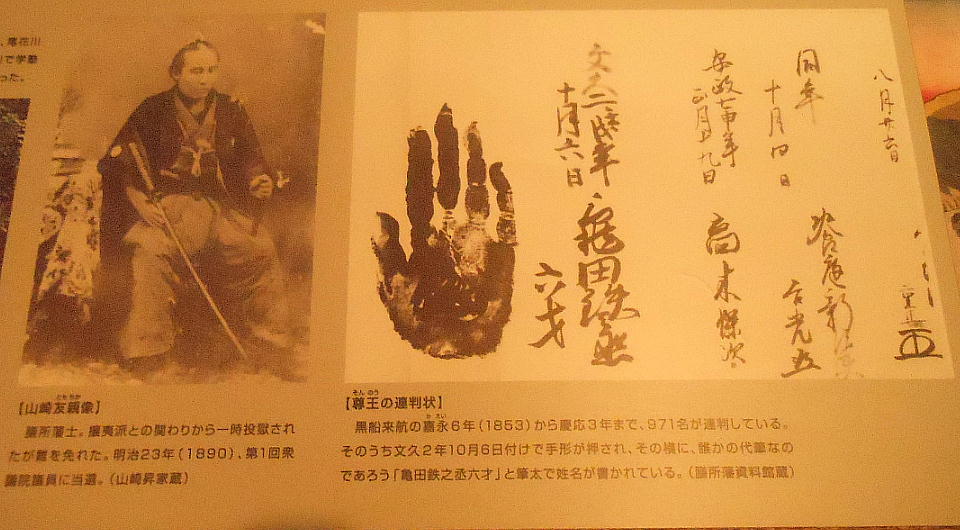 、尾花川
で学塾
った。
八月廿六日
同年
十月四日
安政七申年
高木
文久二戌年
十月六日
亀田鉄之丞
六才
【山崎友親像】
膳所藩士。攘夷派との関わりから一時投獄され
たが難を免れた。明治23年（1890）、第1回衆
議院議員に当選。（山崎昇家蔵）
そんのう
【尊王の連判状】
かえい
黒船来航の嘉永6年（1853）から慶応3年まで、971名が連判している。
そのうち文久2年10月6日付けで手形が押され、その横に、誰かの代筆なの
であろう「亀田鉄之丞六才」と筆太で姓名が書かれている。（膳所藩資料館蔵）